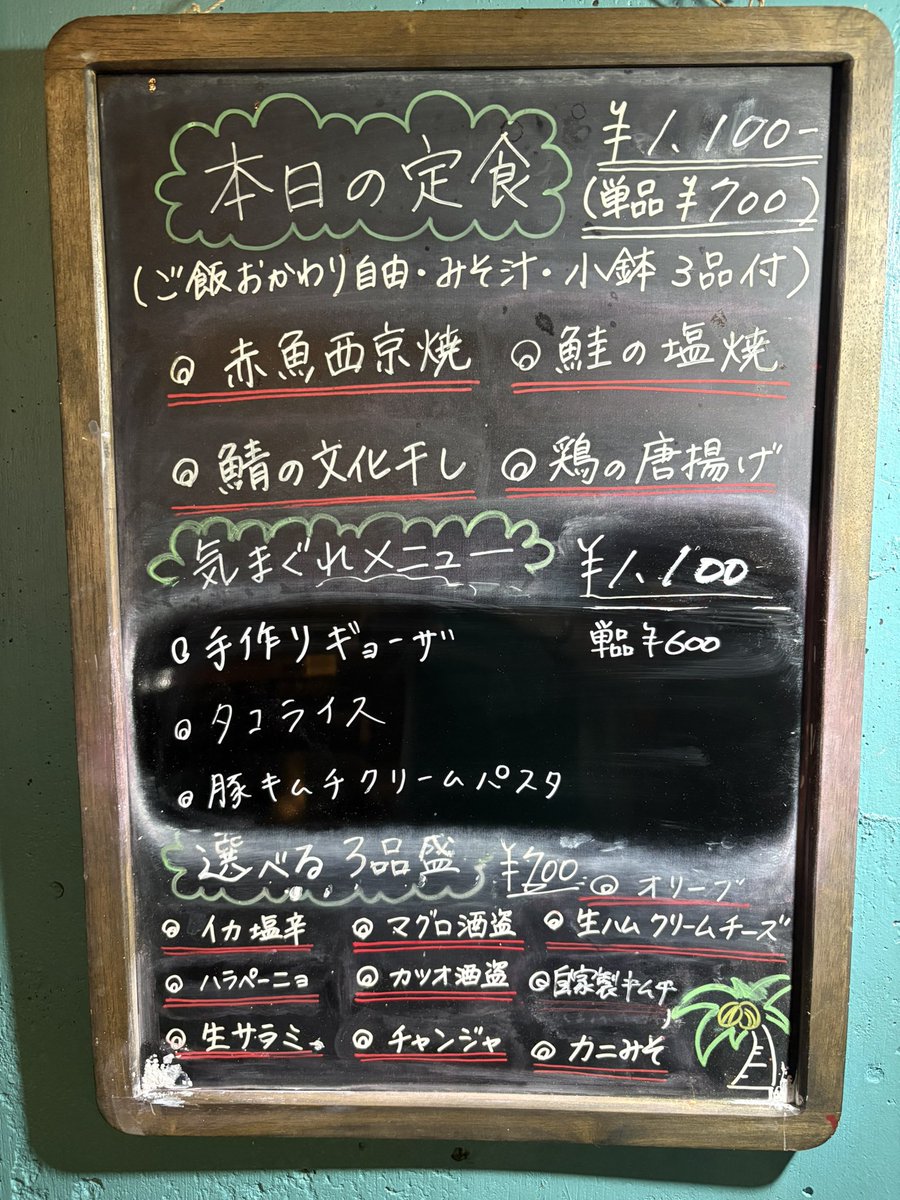 本日の定食 ¥1,100-
(単品¥700)
(ご飯おかわり自由・みそ汁・小鉢3品付)
◎赤魚西京焼 ◎鮭の塩焼
◎鯖の文化干し ◎鶏の唐揚げ
気まぐれメニュー ¥1,100
◎手作りギョーザ 単品¥600
◎タコライス
◎豚キムチクリームパスタ
選べる3品盛 ¥700 ◎オリーブ
◎イカ塩辛 ◎マグロ酒盗 ◎生ハムクリームチーズ
◎ハラペーニョ ◎カツオ酒盗 ◎自家製キムチ
◎生サラミ ◎チャンジャ ◎カニみそ